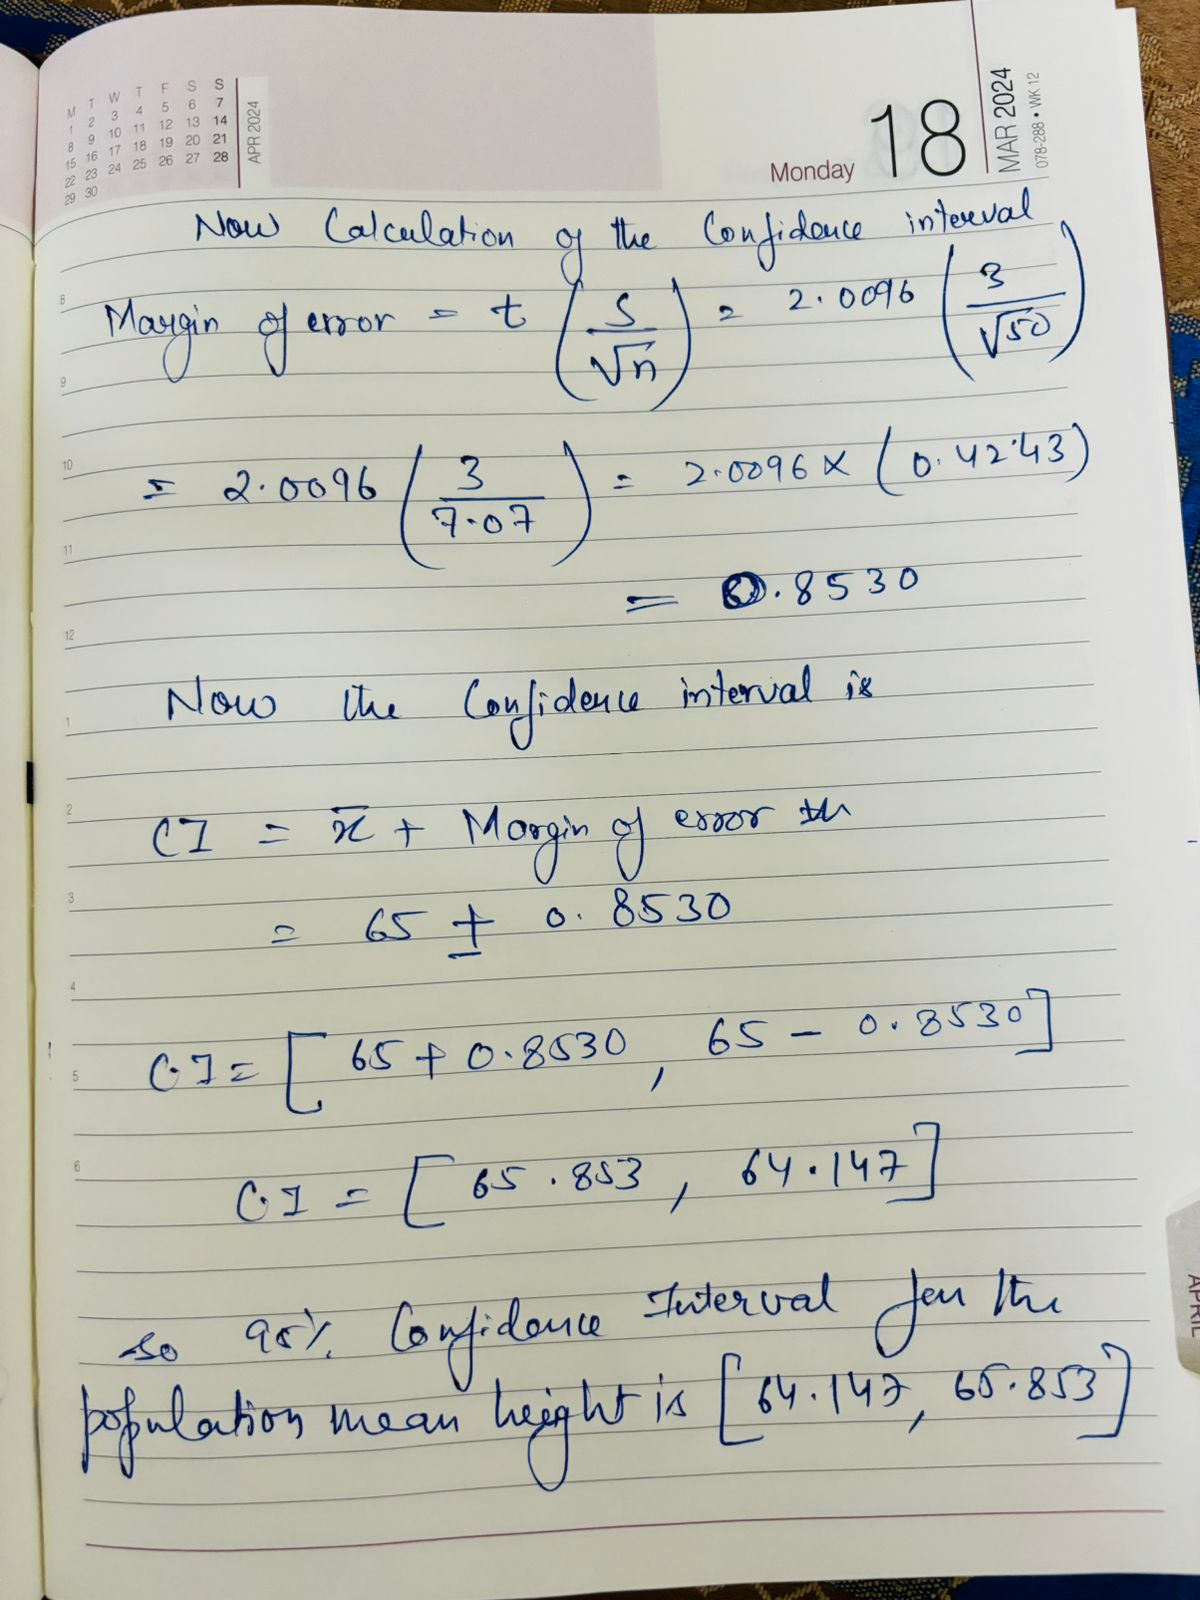 M T W T F S S
1 2 3 4 5 6 7
8 9 10 11 12 13 14
15 16 17 18 19 20 21
22 23 24 25 26 27 28
29 30
APR 2024
Monday 18
MAR 2024
078-288 • WK 12
Now Calculation of the Confidence interval
8
Margin of error = t (S/√n) = 2.0096 (3/√50)
9
10
= 2.0096 (3/7.07) = 2.0096 × (0.4243)
11
= 0.8530
12
Now the Confidence interval is
1
2
CI = x̄ + Margin of error
3
= 65 ± 0.8530
4
C.I = [65 + 0.8530, 65 - 0.8530]
5
6
C.I = [65.853, 64.147]
so 95% Confidence Interval for the
population mean height is [64.147, 65.853]
APRIL